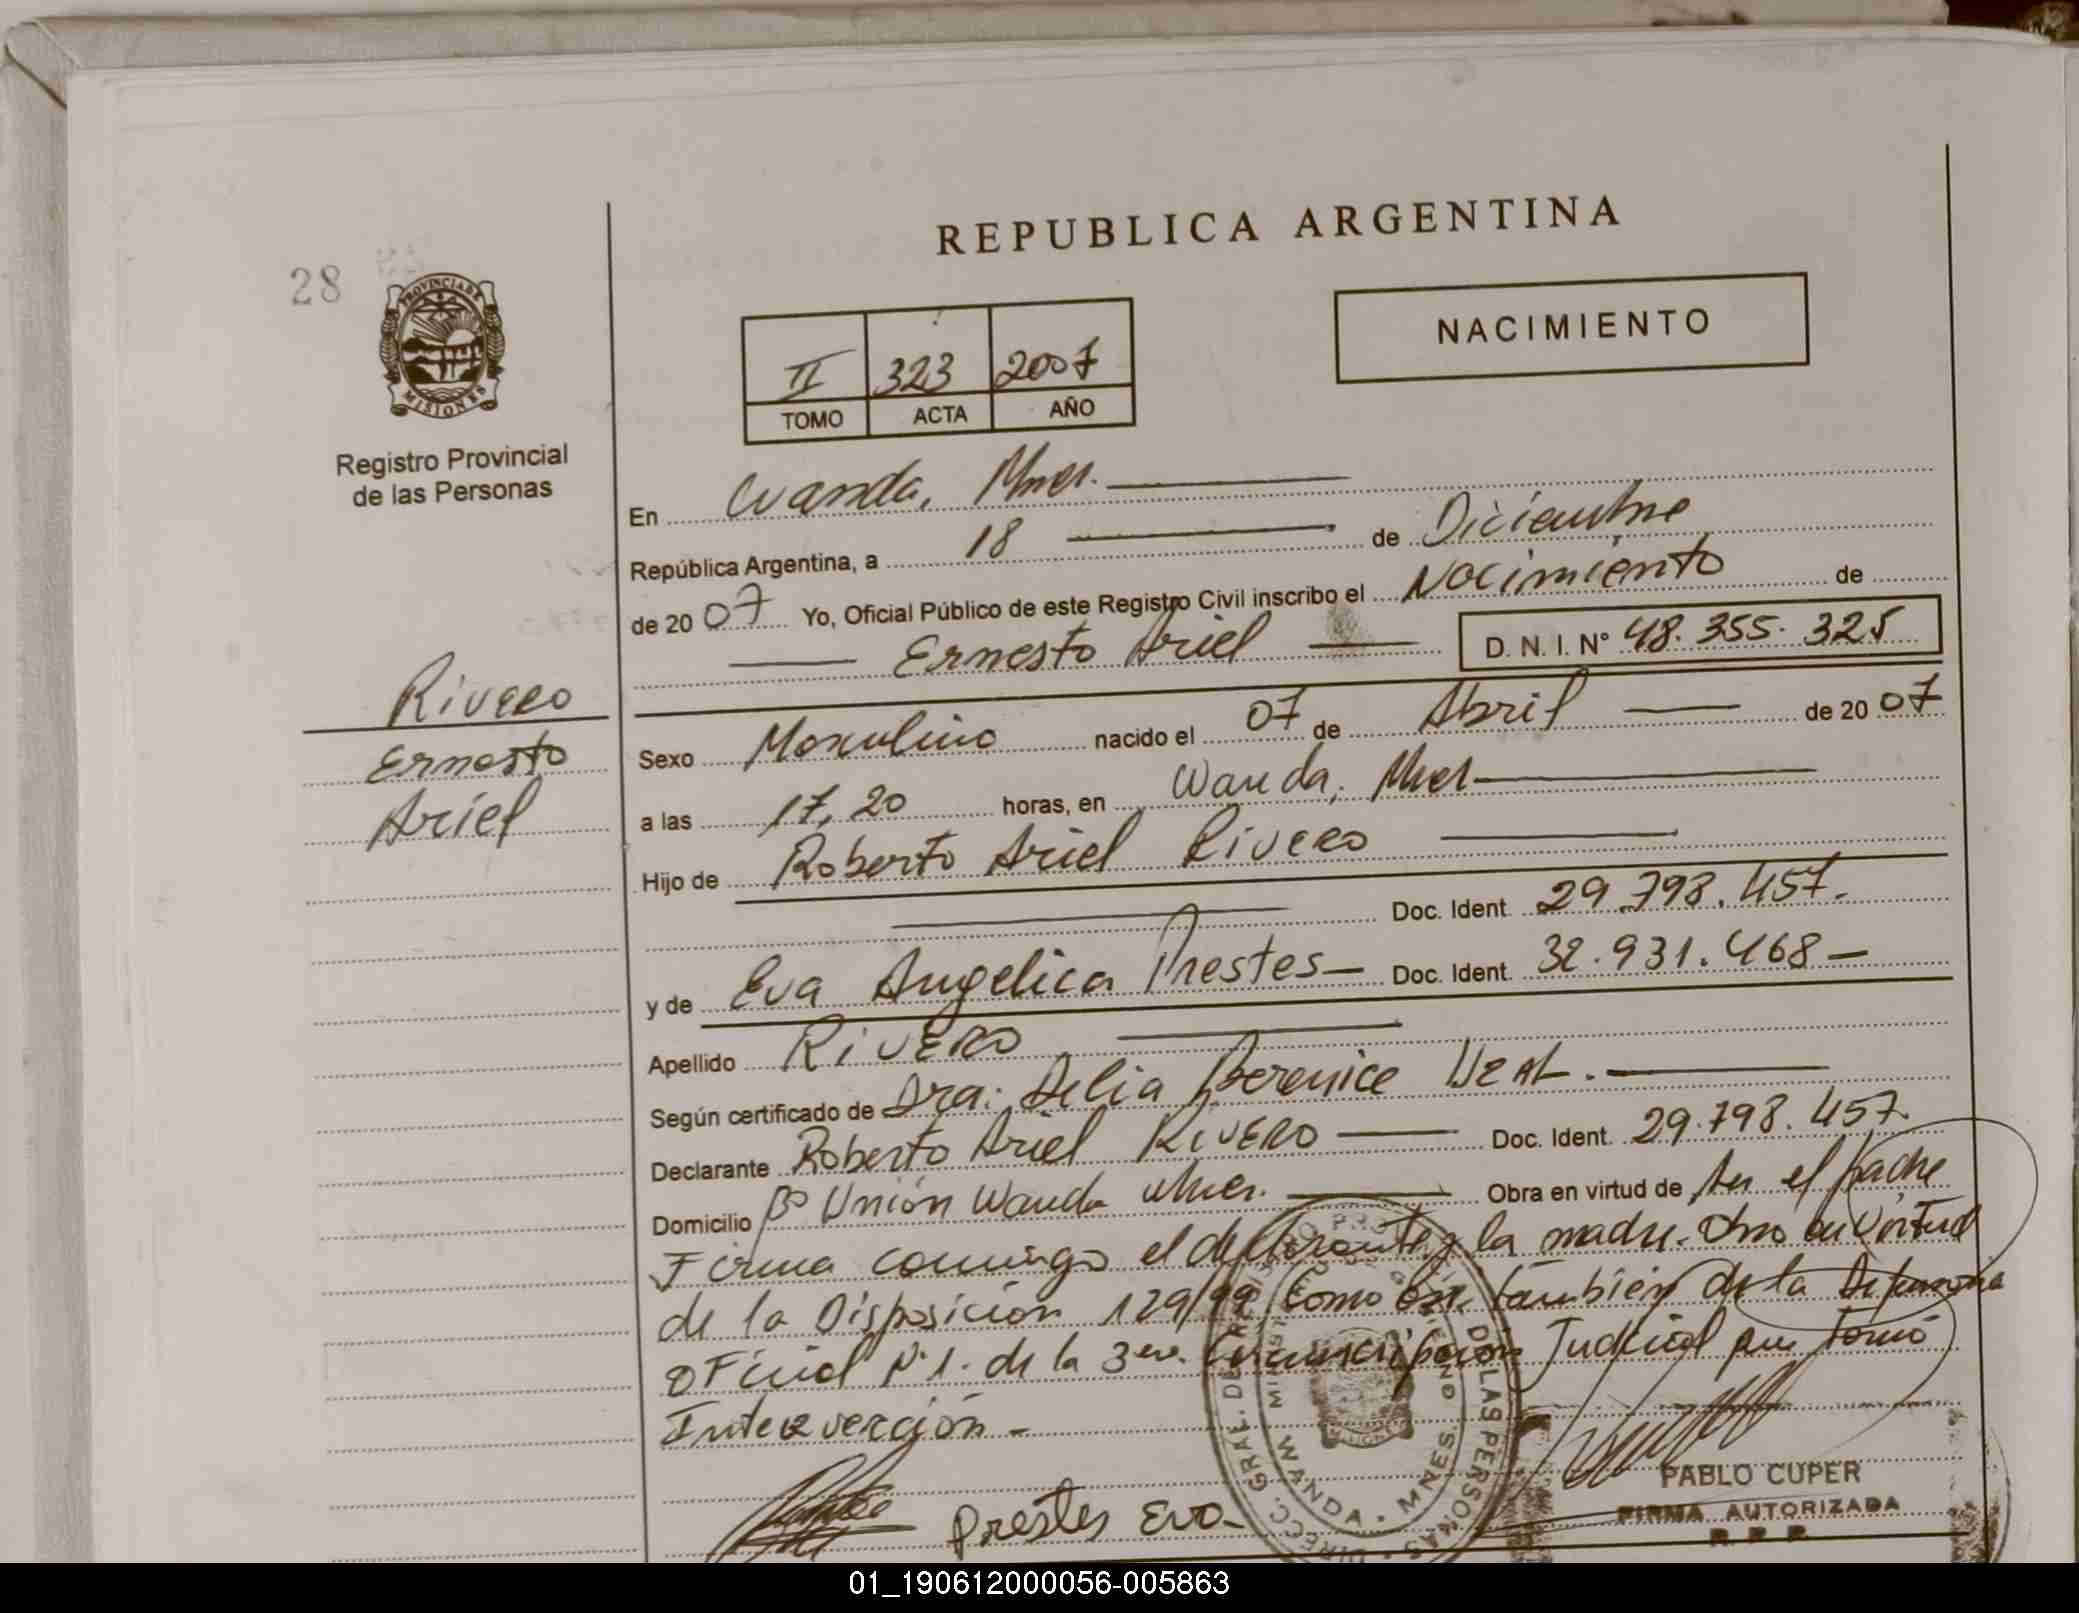 REPUBLICA ARGENTINA
28
PROVINCIA DE
MISIONES
NACIMIENTO
II 323 2007
TOMO ACTA AÑO
Registro Provincial
de las Personas
En Wanda, Mnes.
República Argentina, a 18 de Diciembre
de 2007 Yo, Oficial Público de este Registro Civil inscribo el Nacimiento de
Ernesto Ariel D. N. I. N° 48.355.325
Rivero
Ernesto
Ariel
Sexo Masculino nacido el 07 de Abril de 2007
a las 17,20 horas, en Wanda, Mnes
Hijo de Roberto Ariel Rivero
Doc. Ident. 29.798.457.
y de Eva Angelica Prestes Doc. Ident. 32.931.468
Apellido RiVERO
Según certificado de Dra: Delia Berenice
Declarante Roberto Ariel RiVERO Doc. Ident. 29.798.457.
Domicilio B° Unión Wanda Mnes. Obra en virtud de ser el padre
Firma conmigo el declarante y la madre. Obro en virtud
de la Disposición 129/99 Como así también de la Defensoria
Oficial N°1. de la 3era. Circunscripción Judicial que Tomó
Intervención.
Prestes Eva
DIRECC. GRAL. DE REGISTRO PROVINCIAL DE LAS PERSONAS
MINISTERIO DE GOBIERNO
WANDA - MNES.
PABLO CUPER
FIRMA AUTORIZADA
R. P. P.
01_190612000056-005863